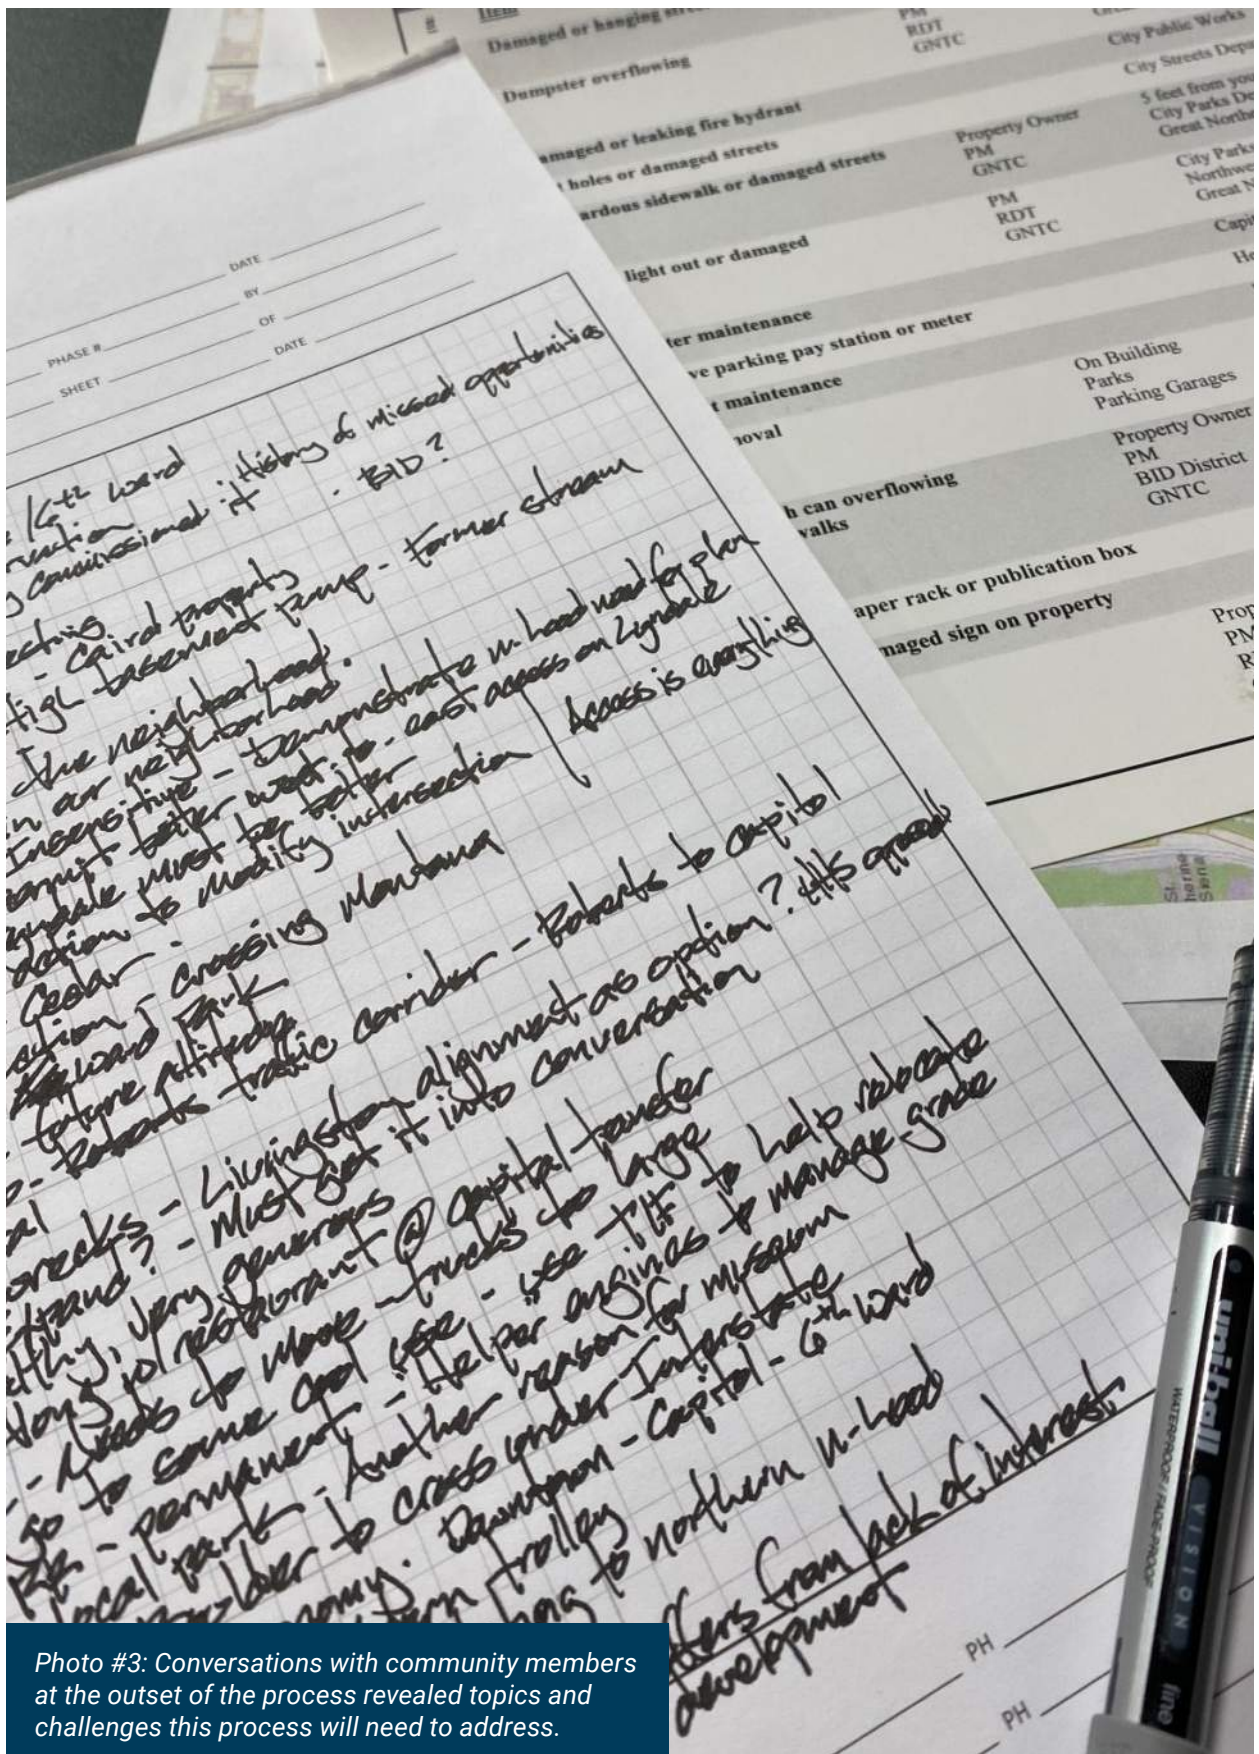 #
Item
Damaged or hanging
PM
RDT
GNTC
City Public Works
Dumpster overflowing
City Streets Depa
amaged or leaking fire hydrant
holes or damaged streets
ardous sidewalk or damaged streets
Property Owner
PM
GNTC
5 feet from you
City Parks De
Great Northe
light out or damaged
PM
RDT
GNTC
City Parks
Northwe
Great N
ter maintenance
Capi
ve parking pay station or meter
t maintenance
On Building
Parks
Parking Garages
noval
Property Owner
PM
BID District
GNTC
h can overflowing
walks
aper rack or publication box
maged sign on property
Prop
PM
DATE
BY
PHASE #
OF
SHEET
DATE
6th ward
History of missed opportunities
commissioned it - BID?
- Caird property
High basement pump - Former stream
the neighborhood.
in our neighborhood.
Insensitive - Demonstrate n-hood need for plan
better west to east access on Lyndale
must be better
to modify intersection
Access is everything
Cedar -
crossing Montana
ward Park
future
traffic corridor - Roberts to Capitol
- Livingston alignment as option?
? - Must get it into conversation
very generous
restaurant @ Capital transfer
- Needs to move - trucks to large
go to some cool use - use TIF to help relocate
RR - permanent - Helper engines to manage grade
local park - Another reason for museum
to cross under Interstate
Downtown - Capitol - 6th ward
trolley
to northern n-hood
from lack of interest
development
PH
PH
St.
herine
Siena
uniball
WATERPROOF / FADE-PROOF
VISION
fine
Photo #3: Conversations with community members
at the outset of the process revealed topics and
challenges this process will need to address.